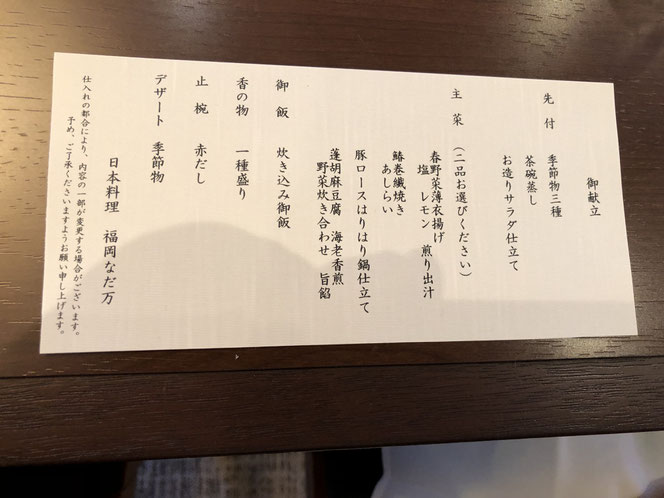 御献立
先付 季節物三種
茶碗蒸し
お造りサラダ仕立て
主菜 (二品お選びください)
春野菜薄衣揚げ
塩 レモン 煎り出汁
鰆巻繊焼き
あしらい
豚ロースはりはり鍋仕立て
蓬胡麻豆腐 海老香煎
野菜炊き合わせ 旨餡
御飯 炊き込み御飯
香の物 一種盛り
止椀 赤だし
デザート 季節物
日本料理 福岡なだ万
仕入れの都合により、内容の一部が変更する場合がございます。
予め、ご了承くださいますようお願い申し上げます。